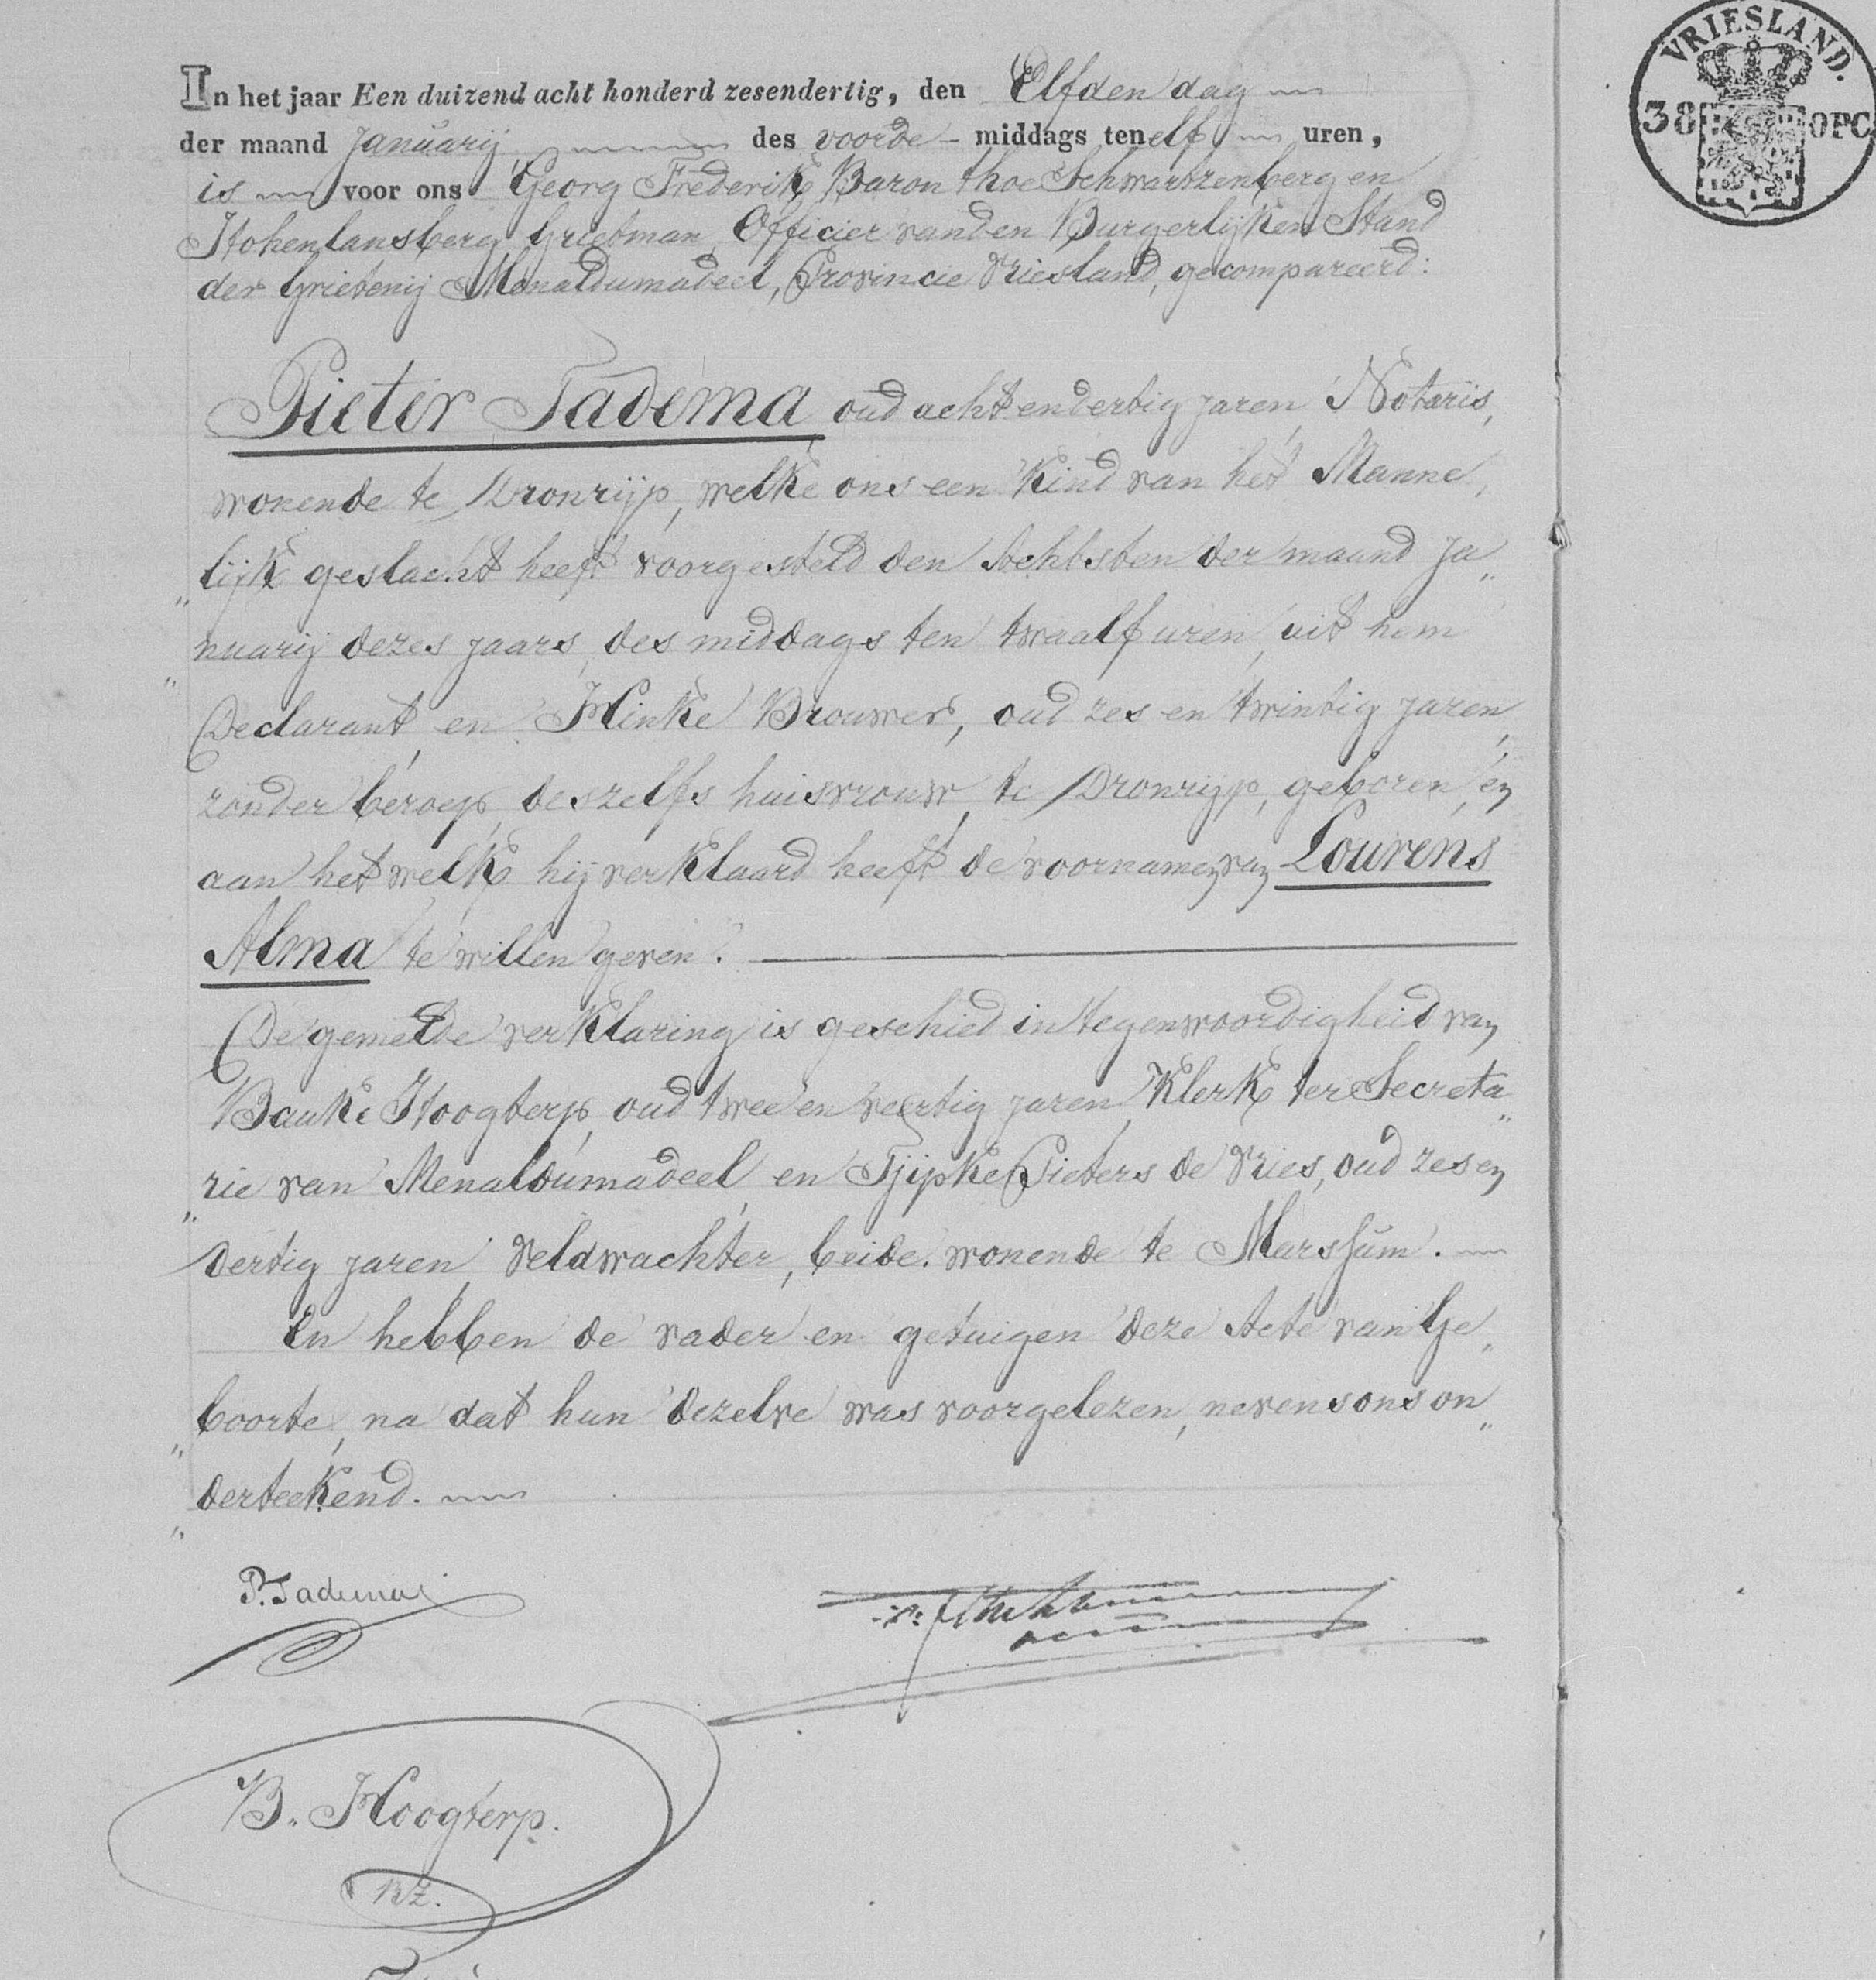 VRIESLAND.
38 OPC
In het jaar Een duizend acht honderd zesendertig, den Elfden dag
der maand Januarij des voorde- middags ten elf uren,
is voor ons Georg Frederik Baron thoe Schwartzenberg en
Hohenlansberg Grietman Officier van den Burgerlijken Stand
der Grietenij Menaldumadeel, Provincie Vriesland, gecompareerd:
Pieter Tadema oud acht en dertig jaren, Notaris,
wonende te Dronrijp, welke ons een Kind van het Manne„
„lijk geslacht heeft voorgesteld den Achtsten der maand Ja„
„nuarij dezes jaars, des middags ten twaalf uren, uit hem
Declarant en Hinke Brouwer, oud zes en twintig jaren,
zonder beroep, deszelfs huisvrouw, te Dronrijp, geboren, en
aan het welk hij verklaard heeft de voornamen van Lourens
Alma te willen geven.
De gemelde verklaring is geschied in tegenwoordigheid van
Bauke Hoogterp, oud twee en veertig jaren, Klerk ter Secreta„
„rie van Menaldumadeel en Tjipke Pieters de Vries, oud zes en
dertig jaren, Veldwachter, beide wonende te Marssum.
En hebben de vader en getuigen deze Acte van Ge„
„boorte, na dat hun dezelve was voorgelezen, nevens ons on„
„derteekend.
P. Tadema
B. Hoogterp.
BZ.